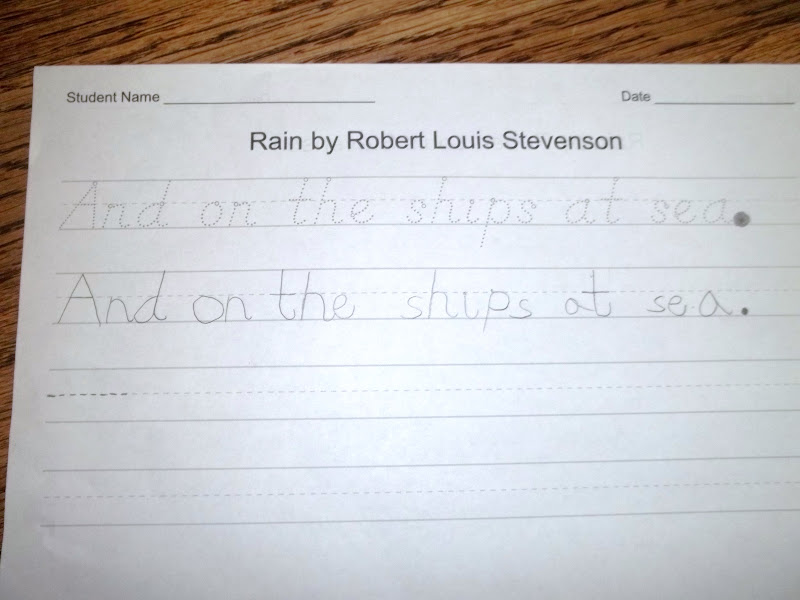 Student Name Date
Rain by Robert Louis Stevenson
And on the ships at sea.
And on the ships at sea.